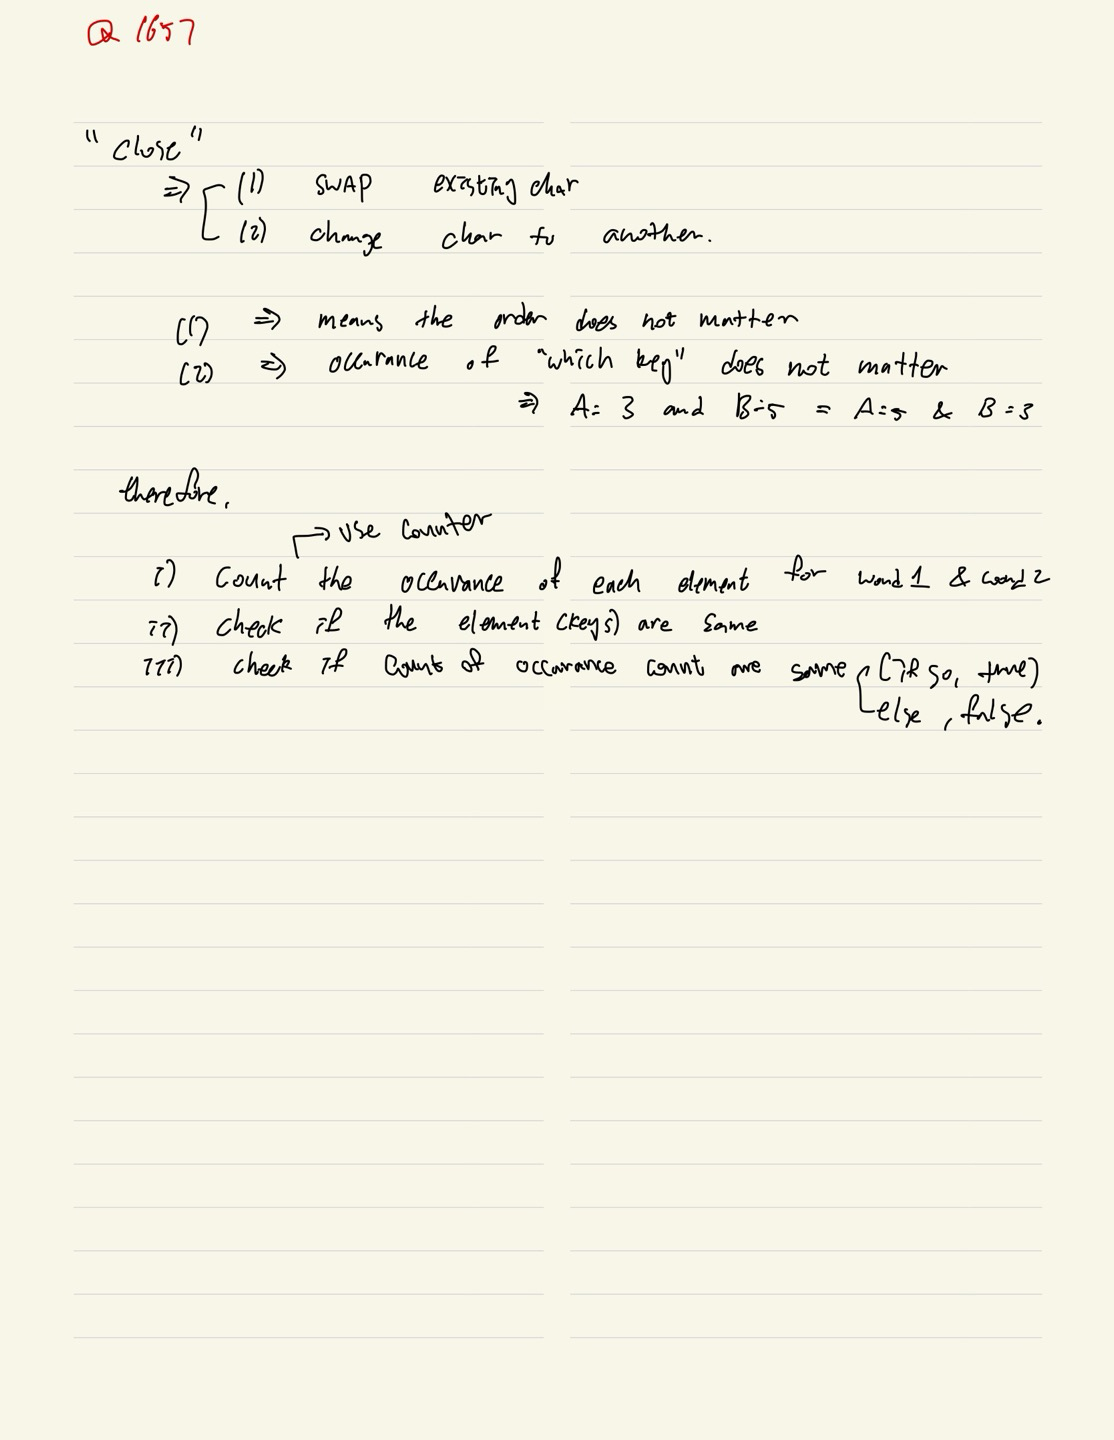 Q 1657
"close"
⇒ (1) SWAP existing char
(2) change char to another.
(1) ⇒ means the order does not matter
(2) ⇒ occurance of "which key" does not matter
⇒ A=3 and B=5 = A=5 & B=3
therefore,
→ use counter
i) Count the occurance of each element for word 1 & word 2
ii) check if the element (keys) are same
iii) check if counts of occurance count are same (if so, true)
else, false.